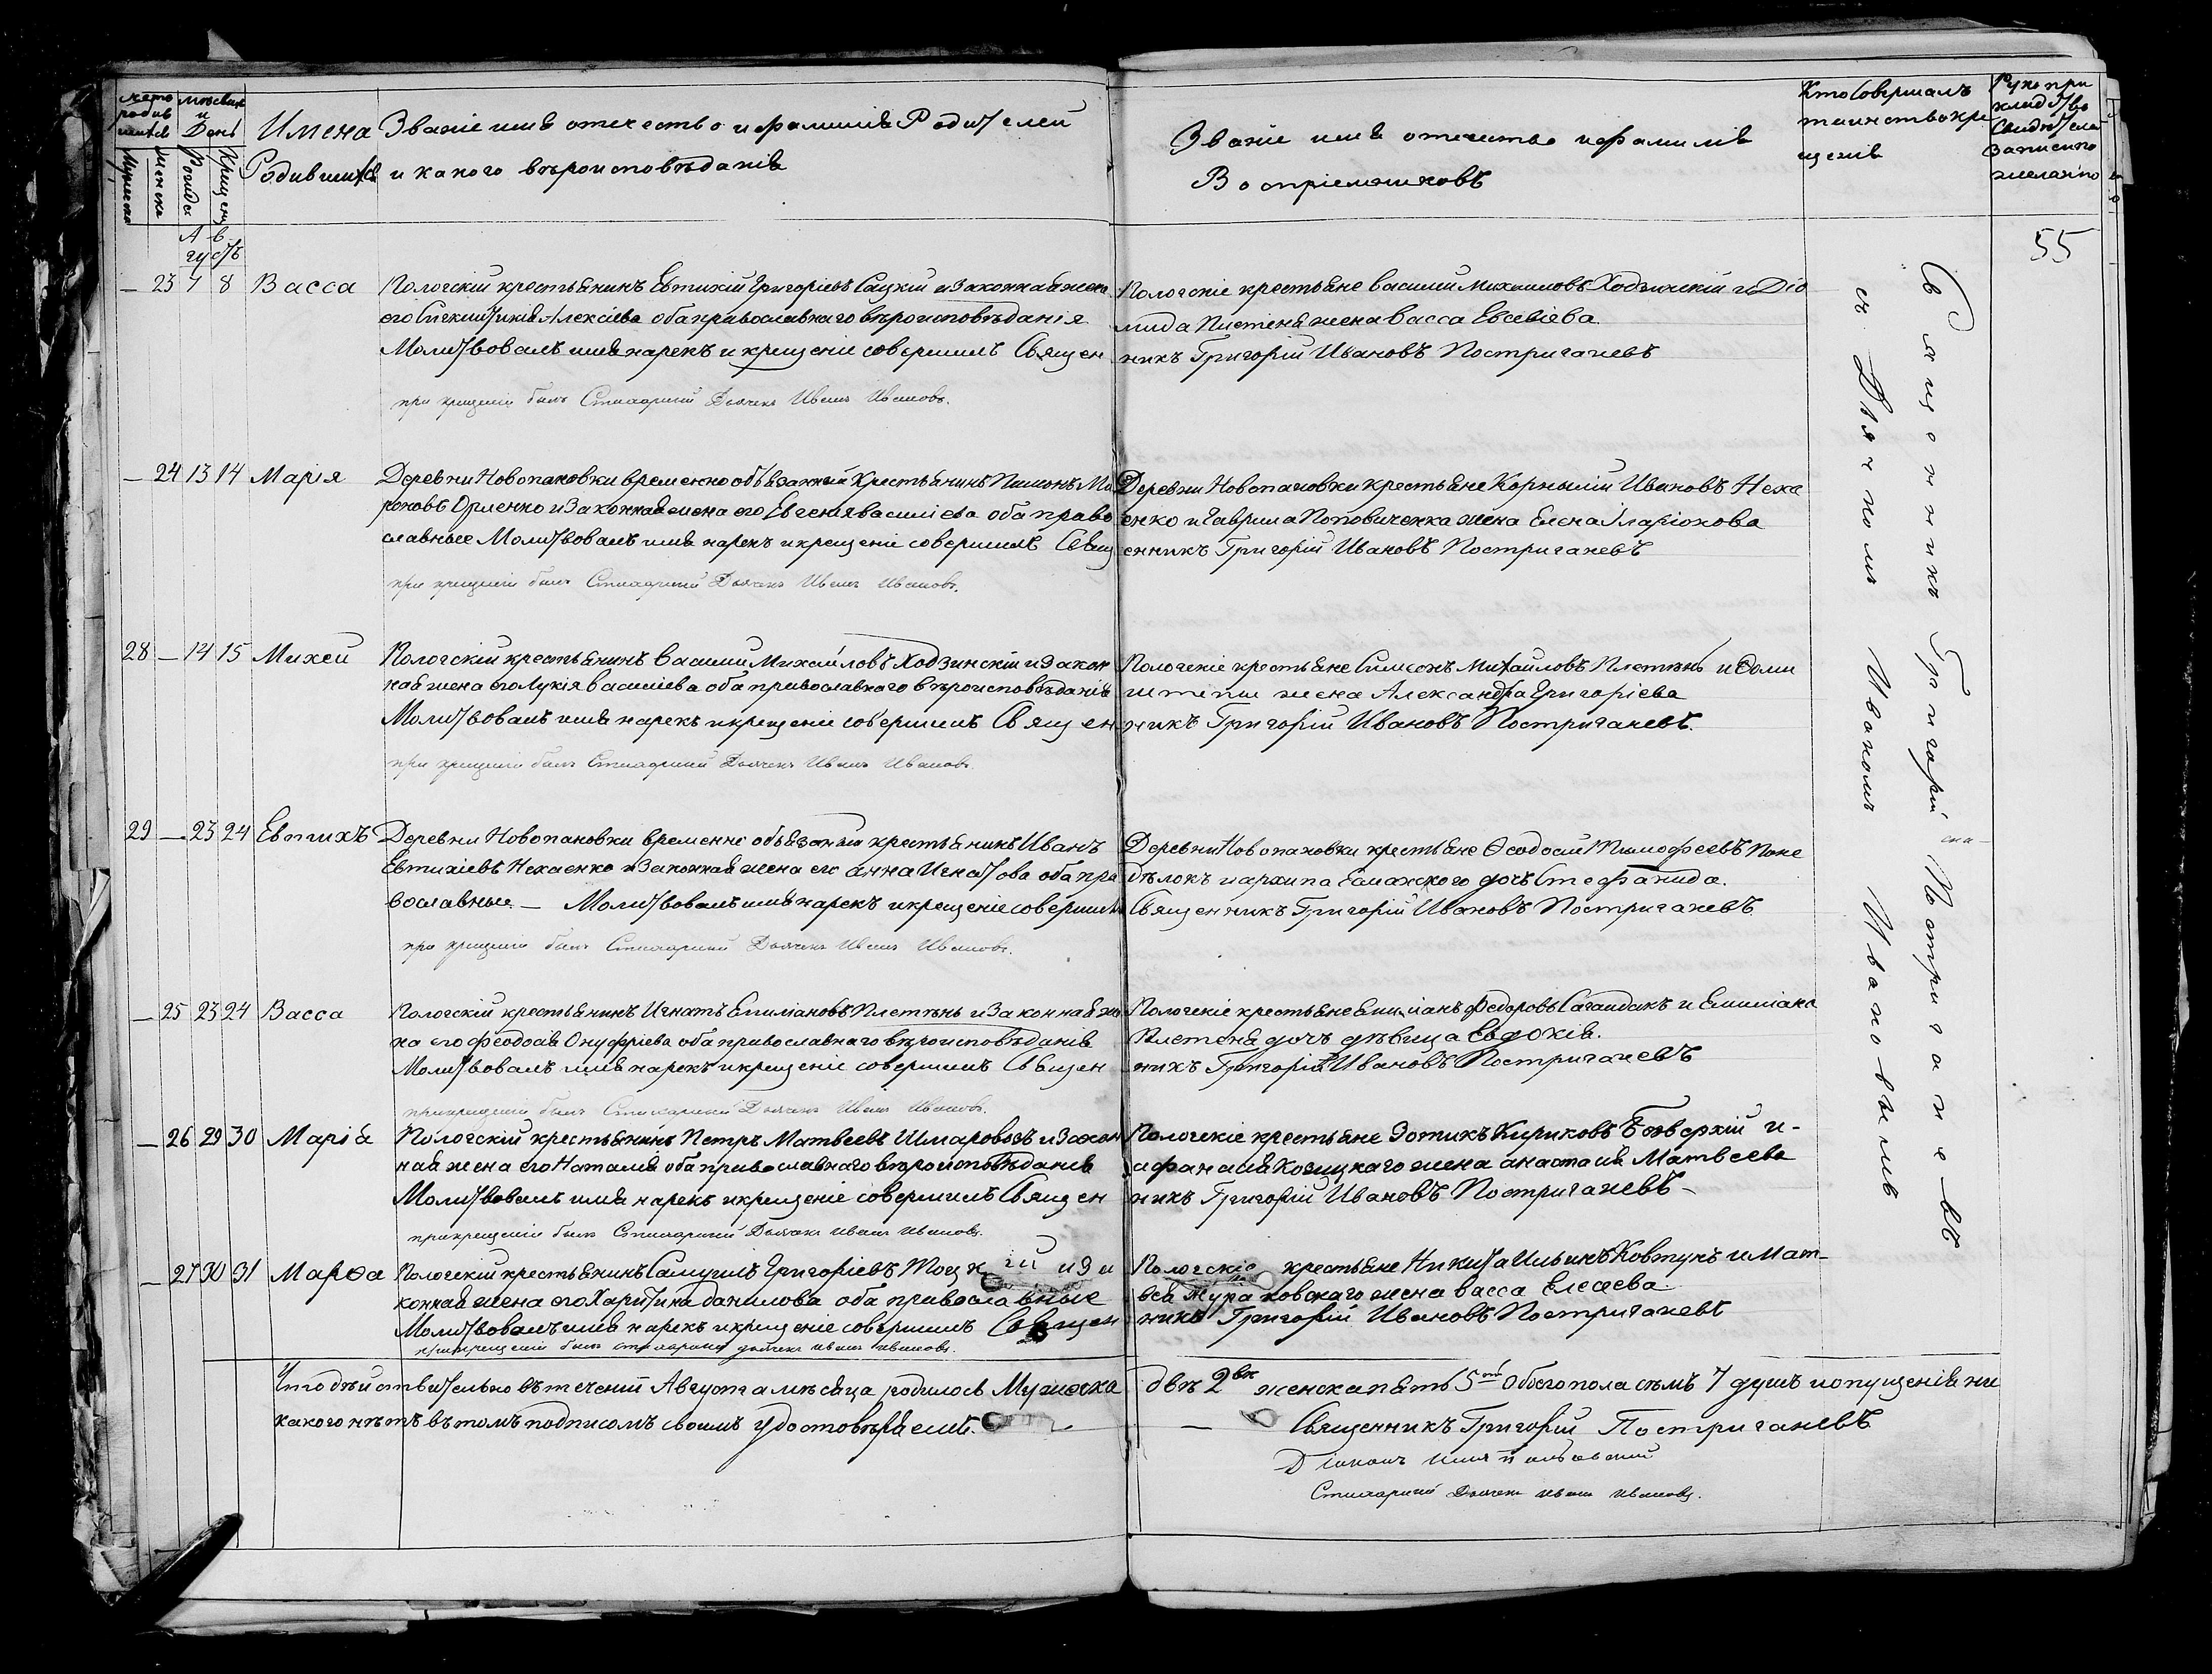 Имена
Званіе имя отечество и фамилія Родителей
Родившихся и какого вѣроисповѣданія
Званіе имя отечество и фамилія
Воспріемниковъ
Кто совершалъ
таинство кре
щенія
Руко при
кладство
свидѣтеле
записи по
желанію
Августъ
55
— 23 7 8 Васса Пологскій крестьянинъ Евтихій Григоріевъ Сацкій и законная жена
его Алексіева оба православнаго вѣроисповѣданія
Молитвовалъ имя нарекъ и крещеніе совершилъ Священ
при крещеніи былъ Стихарный Дьячекъ Иванъ Ивановъ.
Пологскіе крестьяне василий Михаиловъ Ходзинскій и Дiо
мида Плетеня жена васса Евсевіева
никъ Григорій Ивановъ Постригачевъ
— 24 13 14 Марія Деревни Новопановки временно обязанный Крестьянинъ Пимонъ Ми
роновъ Орленко и законная жена его Евгенія василіева оба право
славные Молитвовалъ имя нарекъ и крещеніе совершилъ Свящ
при крещеніи былъ Стихарный Дьячекъ Иванъ Ивановъ.
Деревни Новопановки крестьяне Корнылий Ивановъ Неха
енко и Гаврила Поповиченка жена Елена Іларіонова
енникъ Григорій Ивановъ Постригачевъ
28 — 14 15 Михей Пологскій крестьянинъ василий Михайловъ Ходзинскій и закон
ная жена его Лукія василіева оба православнаго вѣроисповѣданія
Молитвовалъ имя нарекъ и крещеніе совершилъ Священ
при крещеніи былъ Стихарный Дьячекъ Иванъ Ивановъ.
Пологскіе крестьяне Симеонъ Михайловъ Плетѣнь и
жена Александра Григоріева
никъ Григорій Ивановъ Постригачевъ.
29 — 23 24 Евтихъ Деревни Новопановки временно обязанный крестьянинъ Иванъ
Евтихіевъ Нехаенко и законная жена его анна Игнатова оба пра
вославные — Молитвовалъ имя нарекъ и крещеніе совершилъ
при крещеніи былъ Стихарный Дьячекъ Иванъ Ивановъ.
Деревни Новопановки крестьяне Ѳеодосий Тимофеевъ Поне
дѣлокъ и архипа дочь Стефанида.
Священникъ Григорій Ивановъ Постригачевъ
— 25 23 24 Васса Пологскій крестьянинъ Игнатъ Емилиановъ Плетѣнь и законная же
на его феодосія Онуфріева оба православнаго вѣроисповѣданія
Молитвовалъ имя нарекъ и крещеніе совершилъ Священ
при крещеніи былъ Стихарный Дьячекъ Иванъ Ивановъ.
Пологскіе крестьяне Емилианъ Федоровъ Сагайдакъ и Емилиана
Плетеня дочь дѣвица Евдокія.
никъ Григорій Ивановъ Постригачевъ
— 26 29 30 Марія Пологскій крестьянинъ Петръ Матвеевъ Шмаровозъ и закон
ная жена его Наталія оба православнаго вѣроисповѣданія
Молитвовалъ имя нарекъ и крещеніе совершилъ Священ
при крещеніи былъ Стихарный Дьячекъ Иванъ Ивановъ.
Пологскіе крестьяне Зотикъ Кириковъ Безверхій и-
афанасія Козицкаго жена анастасія Матвеева
никъ Григорій Ивановъ Постригачевъ —
— 27 30 31 Марѳа Пологскій крестьянинъ Самуилъ Григоріевъ и за
конная жена его Харитина данилова оба православные
Молитвовалъ имя нарекъ и крещеніе совершилъ Священ
при крещеніи былъ стихарный дьячекъ иванъ ивановъ.
Пологскіе крестьяне Никита Ильинъ Ковтунъ и Мат-
вея жена васса Елесеева
никъ Григорій Ивановъ Постригачевъ
Что дѣйствительно въ теченіи Августа мѣсяца родилось Мужеска
какого нѣтъ въ томъ подписомъ своимъ удостовѣряемъ.
двѣ 2вѣ женска пять 5ть обоего пола сѣмъ 7 душъ и опущенія ни
Священникъ Григорій Постригачевъ
Стихарный Дьячекъ иванъ ивановъ.
Священникъ Григорій Постригачевъ
съ Дьячкомъ Иваномъ Ивановымъ